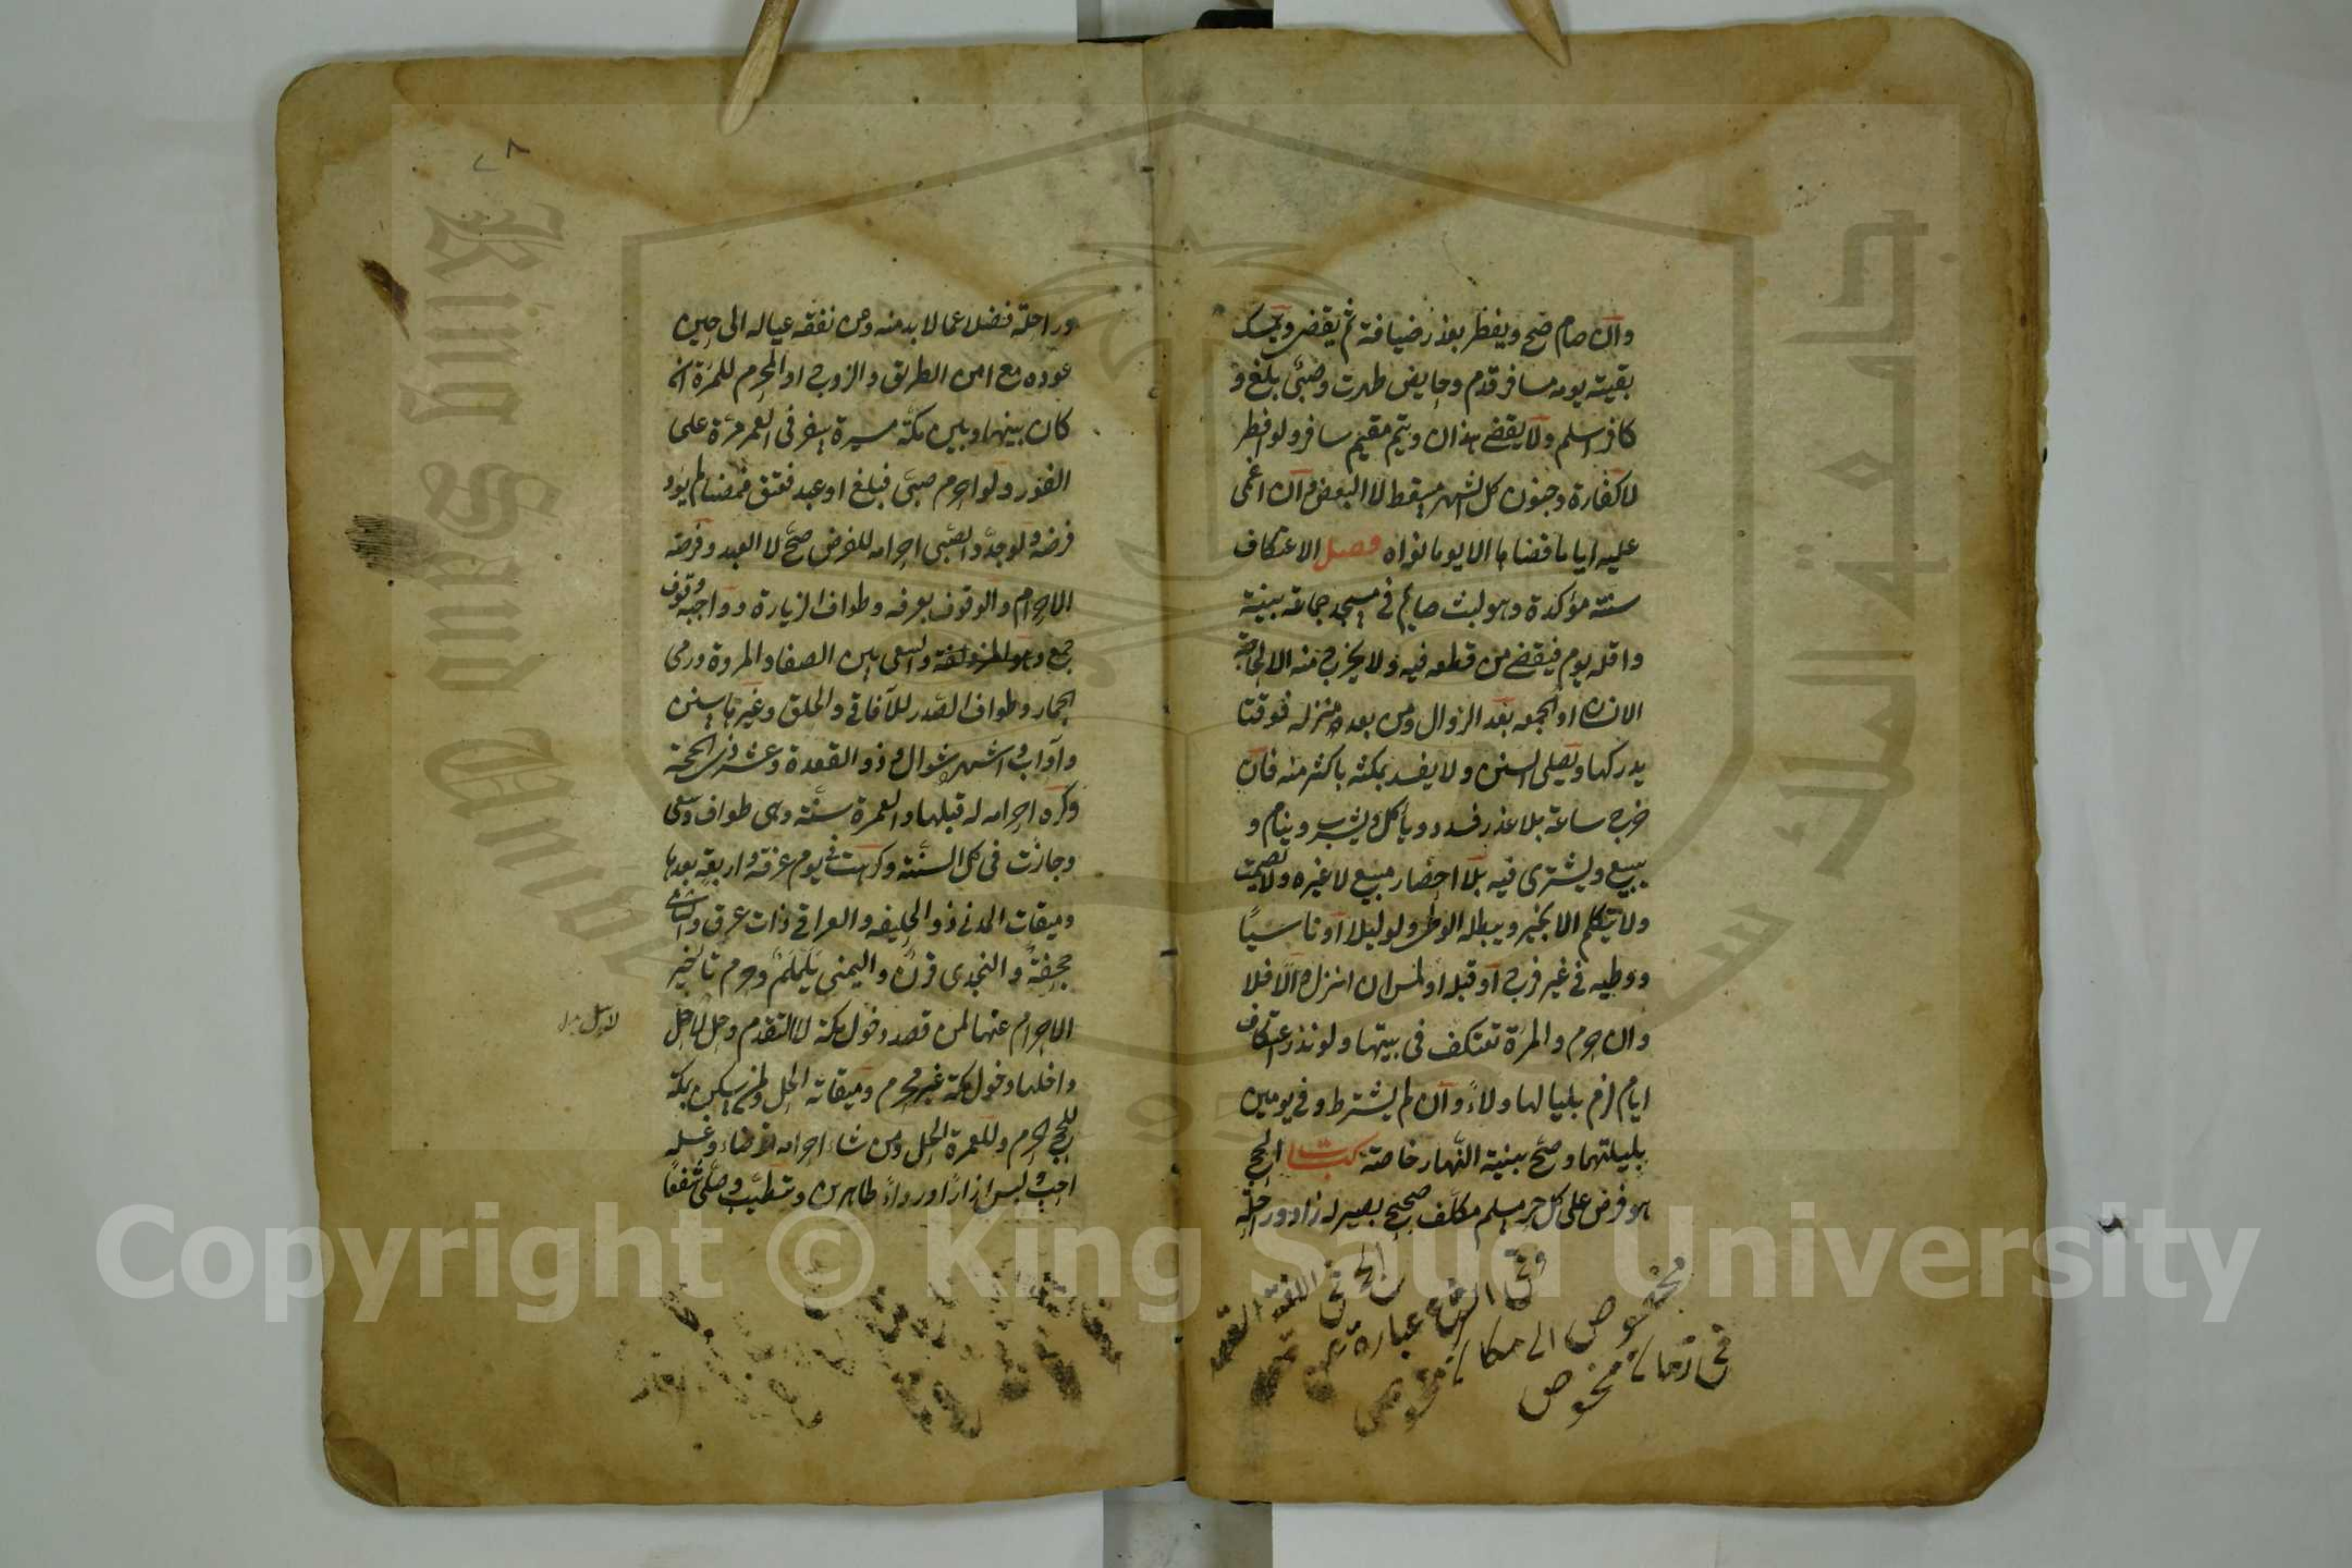 وان صام صح ويفطر بعذر ضيافة ثم يقضى ويمسك
بقية يومه مسافر قدم وحايض طهرت وصبى بلغ و
كافر اسلم ولا يقضى هذان ويتم مقيم سافر ولو افطر
لا كفارة وجنون كل الشهر مسقط لا البعض وان اغمى
عليه اياما قضاها الا يوما نواه فصل الاعتكاف
سنة مؤكدة وهو لبث صايم فى مسجد جماعة بنية
واقله يوم فيقضى من قطعه فيه ولا يخرج منه الا لحاجة
الانسان او الجمعه بعد الزوال ومن بعد منزله فوقتا
يدركها ويصلى السنن ولا يفسد بمكثه باكثر منه فان
خرج ساعة بلا عذر فسد ويأكل ويشرب وينام و
يبيع ويشترى فيه بلا احضار مبيع لا غيره ولا يصمت
ولا يتكلم الا بخير ويبطله الوطى ولو ليلا او ناسيا
ووطيه فى غير فرج او قبلة او لمس ان انزل والا فلا
وان حرم والمرة تعتكف فى بيتها ولو نذر اعتكاف
ايام لزم بلياليها ولاء وان لم يشترط وفى يومين
بليلتهما وصح بنية النهار خاصة كتاب الحج
هو فرض على كل حر مسلم مكلف صحيح بصير له زاد وراحلة
الحج فى اللغة القصد
وفى الشرع عبارة
مخصوص الى مكان
فى زمان مخصوص
وراحلة فضلا عما لا بد منه وعن نفقة عياله الى حين
عوده مع امن الطريق والزوج او المحرم للمرة ان
كان بينها وبين مكة مسيرة سفر فى العمر مرة على
الفور ولو احرم صبى فبلغ او عبد فعتق فمضيا لم يود
فرضه ولو جدد الصبى احرامه للفرض صح لا العبد وفرضه
الاحرام والوقوف بعرفه وطواف الزيارة وواجبه وقوف
جمع وهو المزدلفة والسعى بين الصفا والمروة ورمى
الجمار وطواف الصدر للآفاقى والحلق وغيرها سنن
وآداب واشهره شوال وذو القعدة وعشر ذى الحجة
وكره احرامه له قبلها والعمرة سنة وهى طواف وسعى
وجازت فى كل السنة وكرهت فى يوم عرفة واربعة بعدها
وميقات المدنى ذو الحليفه والعراقى ذات عرق والشامى
جحفة والنجدى قرن واليمنى يلملم وحرم تاخير
الاحرام عنها لمن قصد دخول مكة لا التقدم وحل لاهل
داخلها دخول مكة غير محرم وميقاته الحل ولمن سكن بمكة
للحج الحرم وللعمرة الحل ومن شاء احرامه توضاء وغسله
احب ولبس ازارا ورداء طاهرين وتطيب وصلى شفعا
Copyright © King Saud University